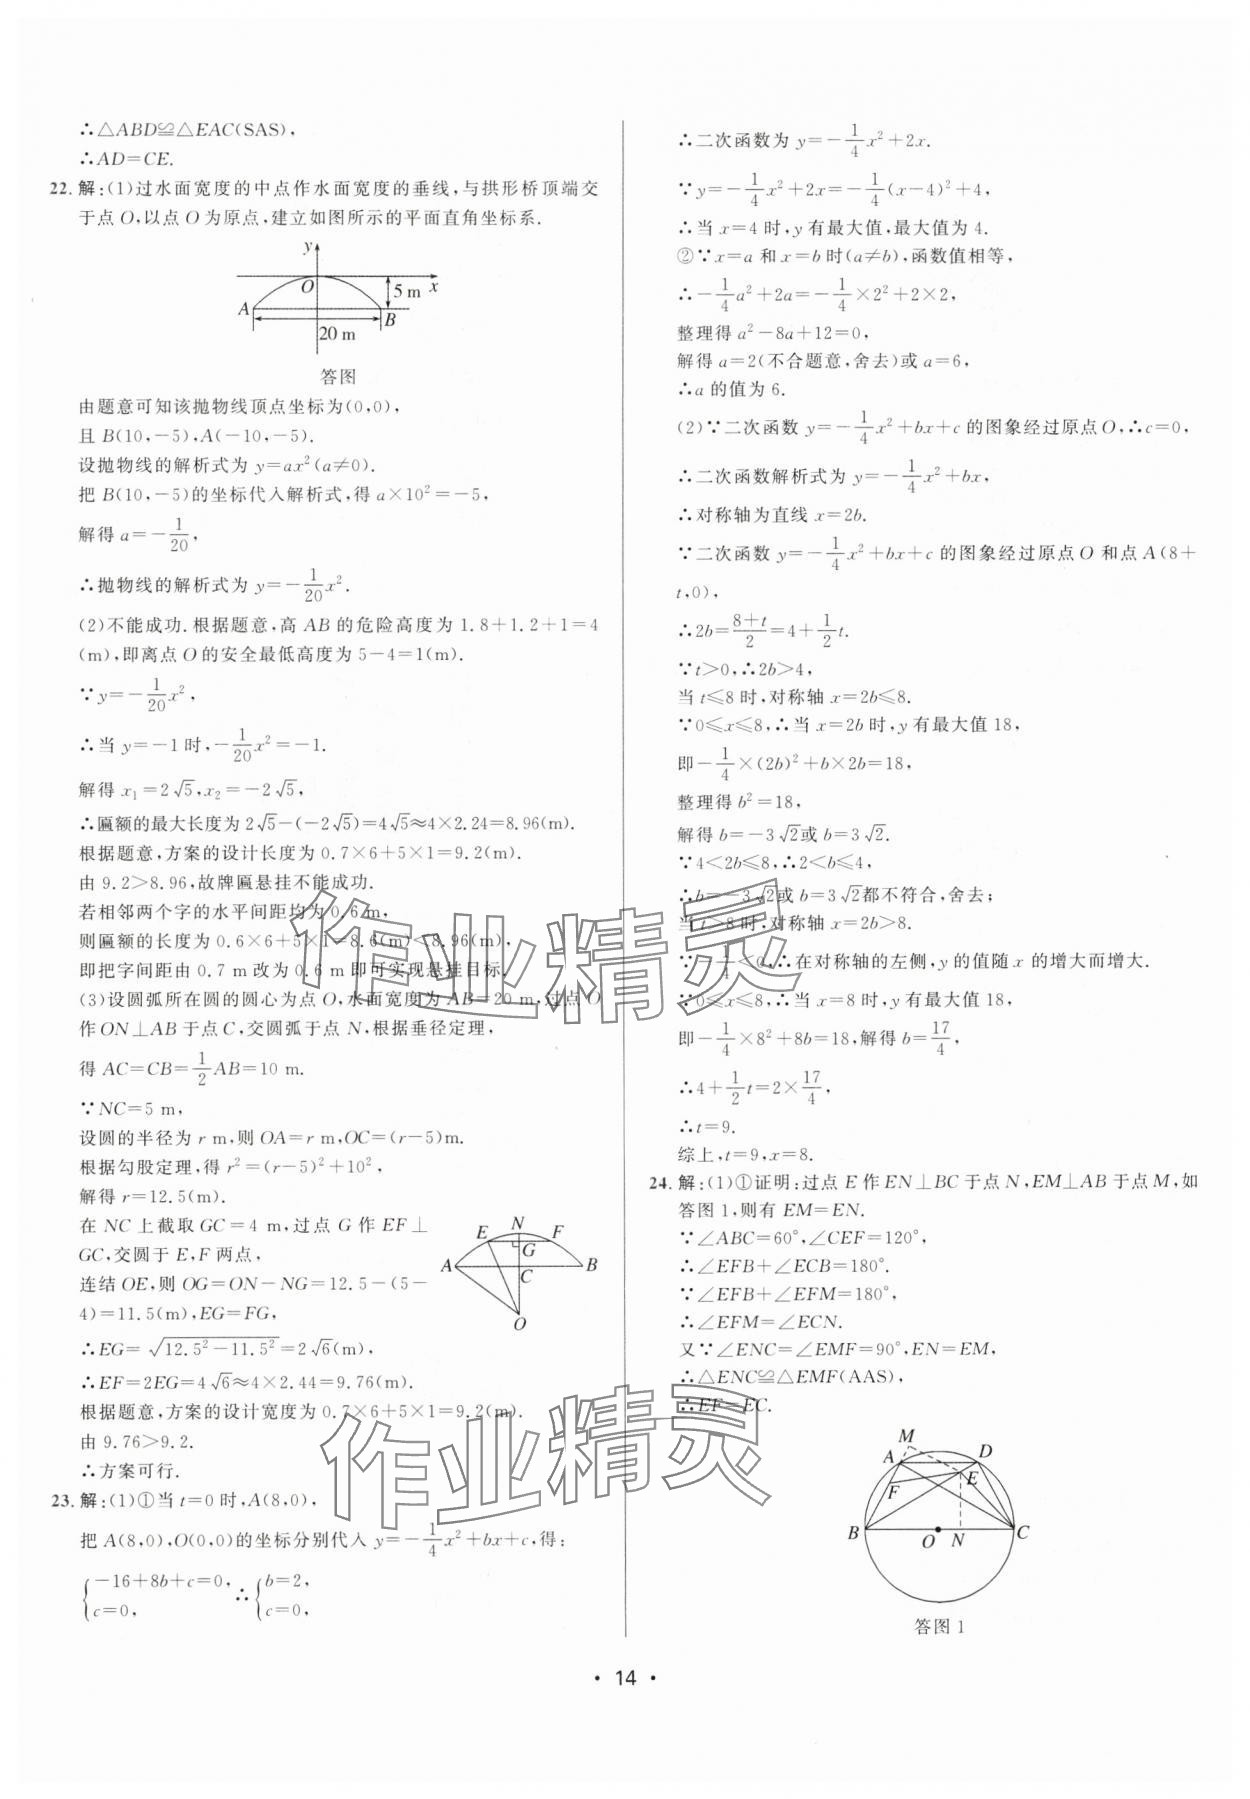 ∴△ABD≌△EAC(SAS),
∴AD=CE.
22. 解:(1)过水面宽度的中点作水面宽度的垂线,与拱形桥顶端交
于点 O,以点 O 为原点,建立如图所示的平面直角坐标系.
y
O
5 m x
A
B
20 m
答图
由题意可知该抛物线顶点坐标为(0,0),
且 B(10,-5),A(-10,-5).
设抛物线的解析式为 y=ax²(a≠0).
把 B(10,-5)的坐标代入解析式,得 a×10²=-5,
解得 a=-1/20,
∴抛物线的解析式为 y=-1/20x².
(2)不能成功.根据题意,高 AB 的危险高度为 1.8+1.2+1=4
(m),即离点 O 的安全最低高度为 5-4=1(m).
∵y=-1/20x²,
∴当 y=-1 时,-1/20x²=-1.
解得 x₁=2√5,x₂=-2√5,
∴匾额的最大长度为 2√5-(-2√5)=4√5≈4×2.24=8.96(m).
根据题意,方案的设计长度为 0.7×6+5×1=9.2(m).
由 9.2>8.96,故牌匾悬挂不能成功.
若相邻两个字的水平间距均为 0.6 m,
则匾额的长度为 0.6×6+5×1=8.6(m)<8.96(m),
即把字间距由 0.7 m 改为 0.6 m 即可实现悬挂目标.
(3)设圆弧所在圆的圆心为点 O,水面宽度为 AB=20 m,过点 O
作 ON⊥AB 于点 C,交圆弧于点 N,根据垂径定理,
得 AC=CB=1/2AB=10 m.
∵NC=5 m,
设圆的半径为 r m,则 OA=r m,OC=(r-5)m.
根据勾股定理,得 r²=(r-5)²+10²,
解得 r=12.5(m).
在 NC 上截取 GC=4 m,过点 G 作 EF⊥
GC,交圆于 E,F 两点,
连结 OE,则 OG=ON-NG=12.5-(5-
4)=11.5(m),EG=FG,
E N F
G
A C B
O
∴EG=√(12.5²-11.5²)=2√6(m),
∴EF=2EG=4√6≈4×2.44=9.76(m).
根据题意,方案的设计宽度为 0.7×6+5×1=9.2(m).
由 9.76>9.2.
∴方案可行.
23. 解:(1)①当 t=0 时,A(8,0),
把 A(8,0),O(0,0)的坐标分别代入 y=-1/4x²+bx+c,得:
{-16+8b+c=0, ∴ {b=2,
{c=0, {c=0,
∴二次函数为 y=-1/4x²+2x.
∵y=-1/4x²+2x=-1/4(x-4)²+4,
∴当 x=4 时,y 有最大值,最大值为 4.
②∵x=a 和 x=b 时(a≠b),函数值相等,
∴-1/4a²+2a=-1/4×2²+2×2,
整理得 a²-8a+12=0,
解得 a=2(不合题意,舍去)或 a=6,
∴a 的值为 6.
(2)∵二次函数 y=-1/4x²+bx+c 的图象经过原点 O,∴c=0,
∴二次函数解析式为 y=-1/4x²+bx,
∴对称轴为直线 x=2b.
∵二次函数 y=-1/4x²+bx+c 的图象经过原点 O 和点 A(8+
t,0),
∴2b=(8+t)/2=4+1/2t.
∵t>0,∴2b>4,
当 t≤8 时,对称轴 x=2b≤8.
∵0≤x≤8,∴当 x=2b 时,y 有最大值 18,
即-1/4×(2b)²+b×2b=18,
整理得 b²=18,
解得 b=-3√2或 b=3√2.
∵4<2b≤8,∴2<b≤4,
∴b=-3√2或 b=3√2都不符合,舍去;
当 t>8 时,对称轴 x=2b>8.
∵-1/4<0,∴在对称轴的左侧,y 的值随 x 的增大而增大.
∵0≤x≤8,∴当 x=8 时,y 有最大值 18,
即-1/4×8²+8b=18,解得 b=17/4,
∴4+1/2t=2×17/4,
∴t=9.
综上,t=9,x=8.
24. 解:(1)①证明:过点 E 作 EN⊥BC 于点 N,EM⊥AB 于点 M,如
答图 1,则有 EM=EN.
∵∠ABC=60°,∠CEF=120°,
∴∠EFB+∠ECB=180°.
∵∠EFB+∠EFM=180°,
∴∠EFM=∠ECN.
又∵∠ENC=∠EMF=90°,EN=EM,
∴△ENC≌△EMF(AAS),
∴EF=EC.
M
A D
F E
B O N C
答图 1
· 14 ·
作业精灵
作业精灵